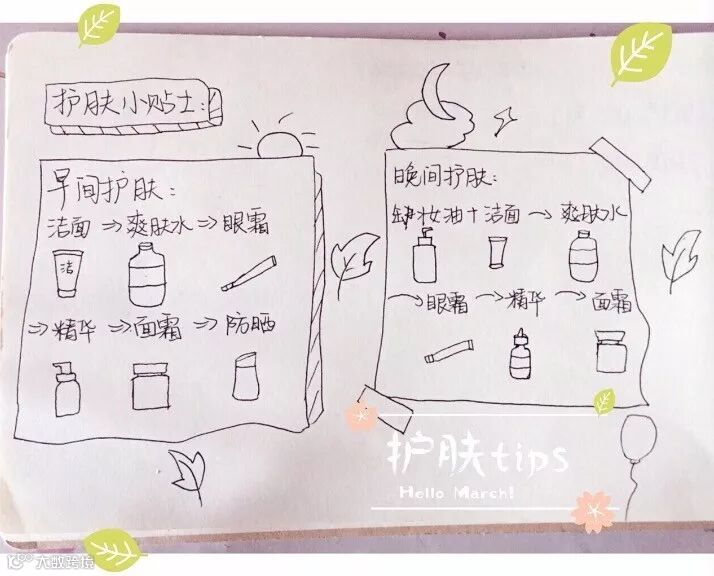 护肤小贴士:
早间护肤:
洁面⇒爽肤水⇒眼霜
洁
⇒精华⇒面霜⇒防晒
晚间护肤:
卸妆油+洁面→爽肤水
→眼霜→精华→面霜
护肤tips
Hello March!
大数跨境